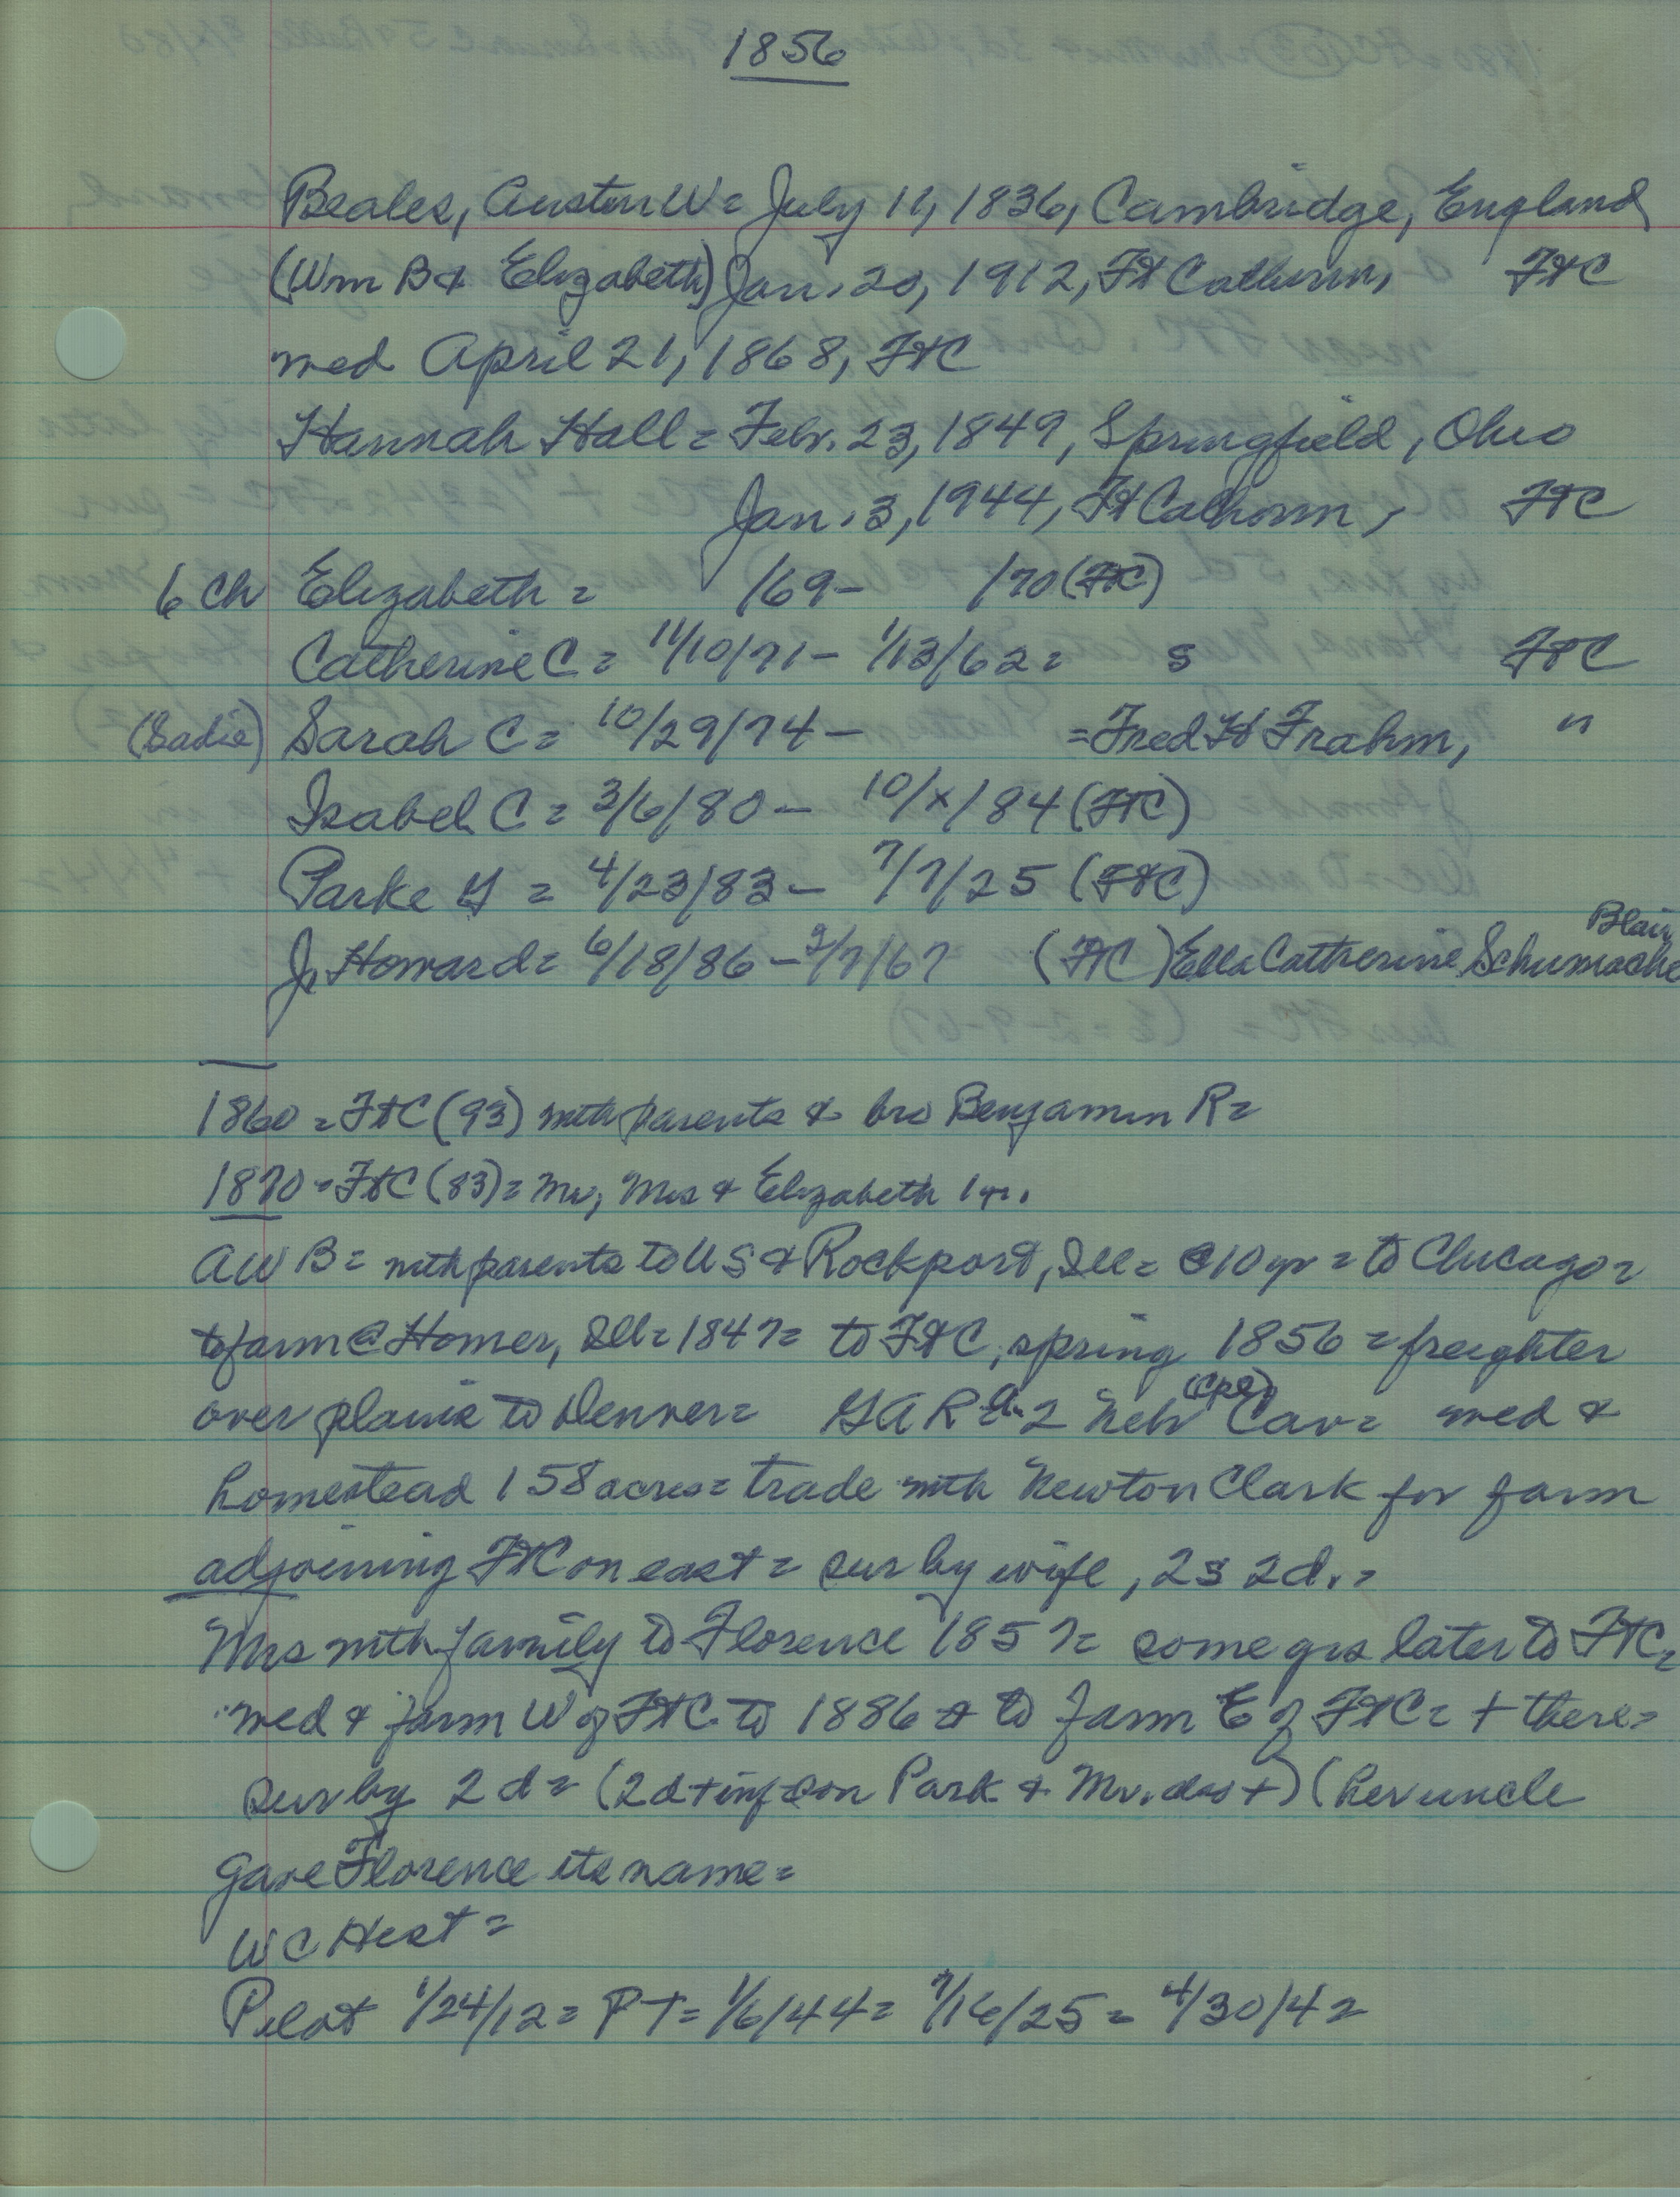 1856
Beales, Austin W = July 11, 1836, Cambridge, England
(Wm B & Elizabeth) Jan. 20, 1912, Ft Calhoun, FtC
med April 21, 1868, FtC
Hannah Hall = Febr. 23, 1849, Springfield, Ohio
Jan. 3, 1944, Ft Calhoun, FtC
6 Ch Elizabeth = /69 - /70 (FtC)
Catherine C = 11/10/71 - 1/13/62 = s FtC
(Sadie) Sarah C = 10/29/74 - = Fred H Frahm, "
Isabel C = 3/6/80 - 10/x/84 (FtC)
Parke G = 4/23/83 - 7/7/25 (FtC)
Blair
J. Howard = 6/18/86 - 2/7/67 (FtC) Ella Catherine Schumache
1860 = FtC (93) with parents & bro Benjamin R =
1870 = FtC (83) = Mr, Mrs & Elizabeth 1 yr.
AWB = with parents to US & Rockport, Ill = @10 yr = to Chicago =
to farm @ Homer, Ill = 1847 = to FtC, spring 1856 = freighter
over plains to Denver = GAR = 2 Neb (Cpl) Cav = med &
homestead 158 acres = trade with Newton Clark for farm
adjoining FtC on east = sur by wife, 2s 2d. =
Mrs with family to Florence 1857 = some yrs later to FtC =
med & farm W of FtC to 1886 & to farm E of FtC = + there =
sur by 2d = (2d + inf son Park & Mr. das +) (her uncle
gave Florence its name =
WC Hist =
Pilot 1/24/12 = PT = 1/6/44 = 7/16/25 = 4/30/42